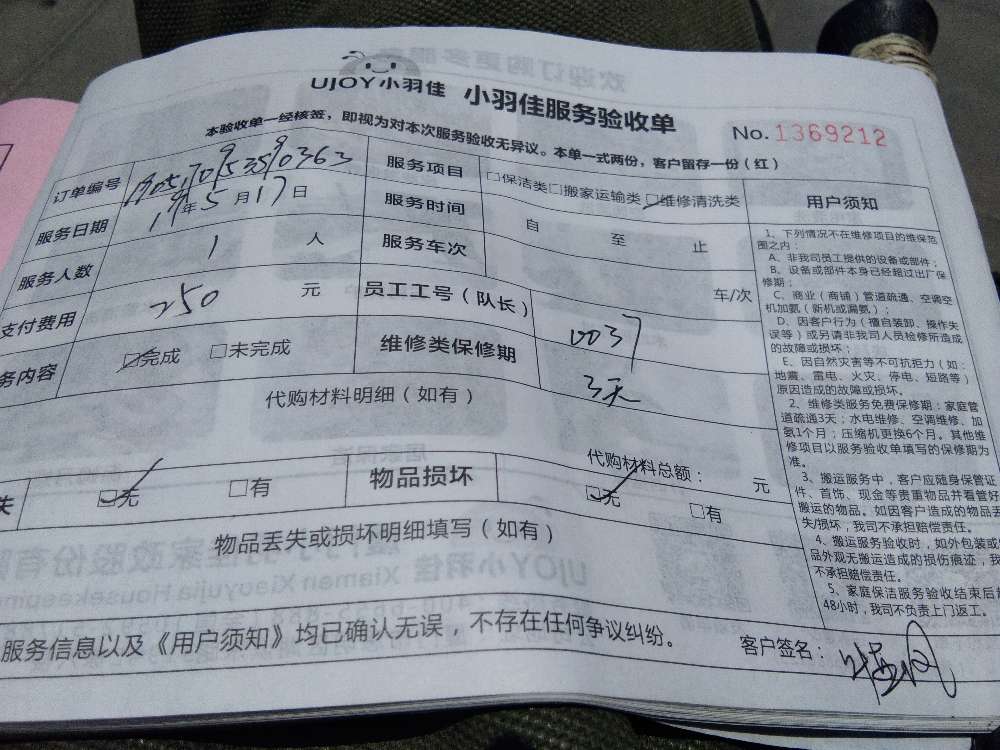 UJOY小羽佳 小羽佳服务验收单
No.1369212
本验收单一经核签，即视为对本次服务验收无异议。本单一式两份，客户留存一份（红）
订单编号
服务项目 □保洁类□搬家运输类□维修清洗类 用户须知
服务日期 19年5月17日 服务时间 自 至 止
服务人数 1 人 服务车次 车/次
支付费用 250 元 员工工号（队长） 0037
务内容 ☑完成 □未完成 维修类保修期 3天
代购材料明细（如有）
代购材料总额： 元
失 ☑无 □有 物品损坏 ☑无 □有
物品丢失或损坏明细填写（如有）
服务信息以及《用户须知》均已确认无误，不存在任何争议纠纷。 客户签名：
1、下列情况不在维修项目的维保范
围之内：
A、非我司员工提供的设备或部件；
B、设备或部件本身已经超过出厂保
修期；
C、商业（商铺）管道疏通、空调空
机加氨（新机或漏氨）；
D、因客户行为（擅自装卸、操作失
误等）或另请非我司人员检修所造成
的故障或损坏；
E、因自然灾害等不可抗拒力（如：
地震、雷电、火灾、停电、短路等）
原因造成的故障或损坏。
2、维修类服务免费保修期：家庭管
道疏通3天；水电维修、空调维修、加
氨1个月；压缩机更换6个月。其他维
修项目以服务验收单填写的保修期为
准。
3、搬运服务中，客户应随身保管证
件、首饰、现金等贵重物品并看管好
搬运的物品。如因客户造成的物品丢
失/损坏，我司不承担赔偿责任。
4、搬运服务验收时，如外包装或
品外观无搬运造成的损伤痕迹，我
不承担赔偿责任。
5、家庭保洁服务验收结束后
48小时，我司不负责上门返工。